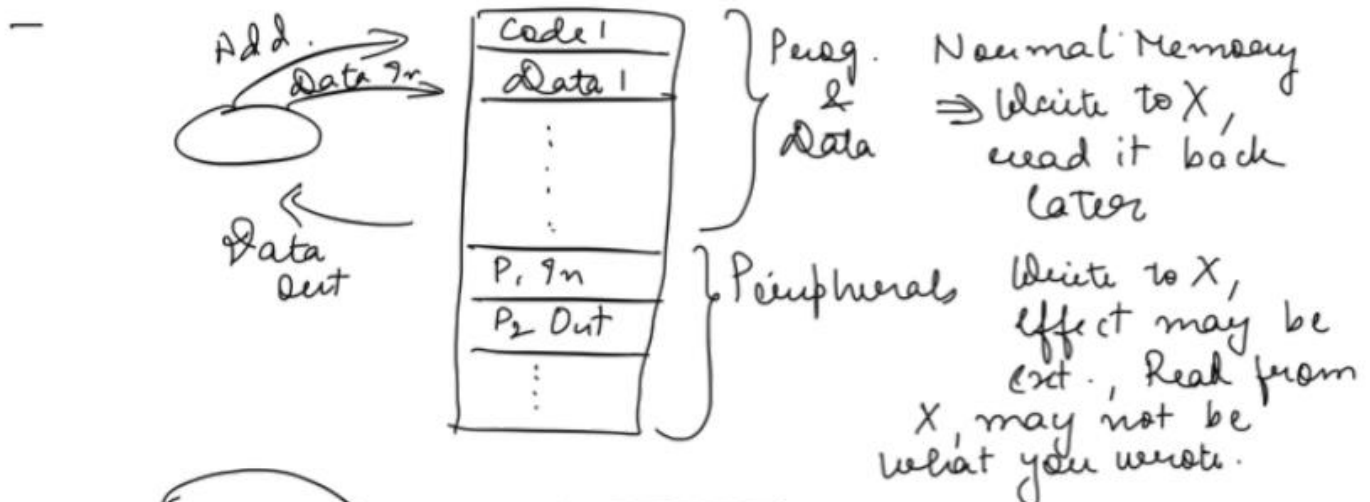 Add.
Data In
Data Out
Code 1
Data 1
P1 In
P2 Out
Prog. & Data
Peripherals
Normal Memory
⇒ Write to X,
read it back
later
Write to X,
effect may be
ext., Read from
X, may not be
what you wrote.